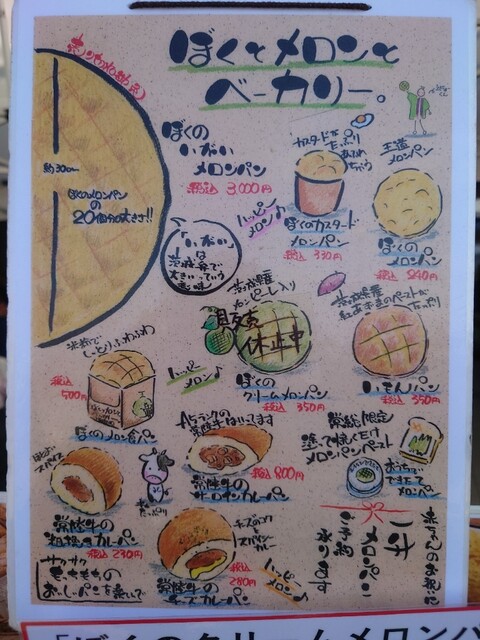 ぼくとメロンと
ベーカリー。
約30cm
ぼくのメロンパン
の
20個分の大きさ!!
ぼくの
いがい
メロンパン
税込 3,000円
「いがい」
は
茨城弁で
大きいっていう
意味
カスタードが
たっぷり
ぼくのカスタード
メロンパン
税込 330円
王道
メロンパン
ぼくの
メロンパン
税込 240円
ハッピー
メロン♪
茨城県産
メロンピューレ入り
販売
休止中
ぼくの
クリームメロンパン
税込 350円
茨城県産
紅あずまのペーストが
たっぷり
いもんパン
税込 350円
米粉で
しっとりふわふわ
税込
500円
ぼくのメロン食パン
ハッピー
メロン♪
Aランクの
常陸牛はいってます
税込 800円
常陸牛の
サーロインカレーパン
常総限定
塗って焼くだけ
メロンパンペースト
おうちで
できたて
メロンパン
スパイス
常陸牛の
粗挽きカレーパン
税込 230円
チーズのコク
スパイシー
カレー
税込
280円
常陸牛の
チーズカレーパン
ハッピー
メロン♪
サクサク
もっちもちの
おいしいパンを焼いて
赤ちゃんのお祝いに
一升
メロンパン
ご予約
承ります
「ぼくのクリームメロンパ